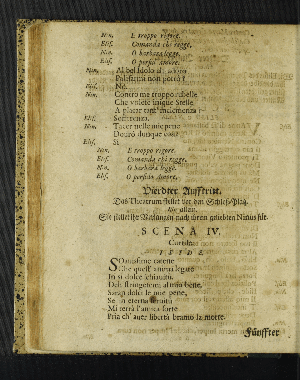 Nin. E troppo rigore.
Elis. Comanda chi regge.
Nin. O barbara legge.
Elis. O perfido Amore.
Nin. Al bel Idolo
Palesarmi non potrò?
Elis. Nò.
Nin. Contro me troppo rubelle
Che volete inique Stelle
A placar tant' inclemenza?
Elis. Sofferenza.
Nin. Tacer nelle mie pene
Dourò dunque così?
Elis. Sì.
Nin. E troppo rigore.
Elis. Comanda chi regge.
Nin. O barbara legge.
Elis. O perfido Amore.
Vierdter Aufftritt.
Das Theatrum stellet vor den Schloß-Platz.
Isis allein.
Sie stellet ihr Verlangen nach ihren geliebten Ninus für.
SCENA IV.
Cortile.
ISIDE.
SOauissime catene
Che quest' anima legate
In sì dolce seruitù,
Deh stringetemi al mio bene,
Saran dolci le mie pene,
Se in eterna
Mi terrà l'amica sorte
Pria ch' auer libertà bramo la morte.
Fünffter